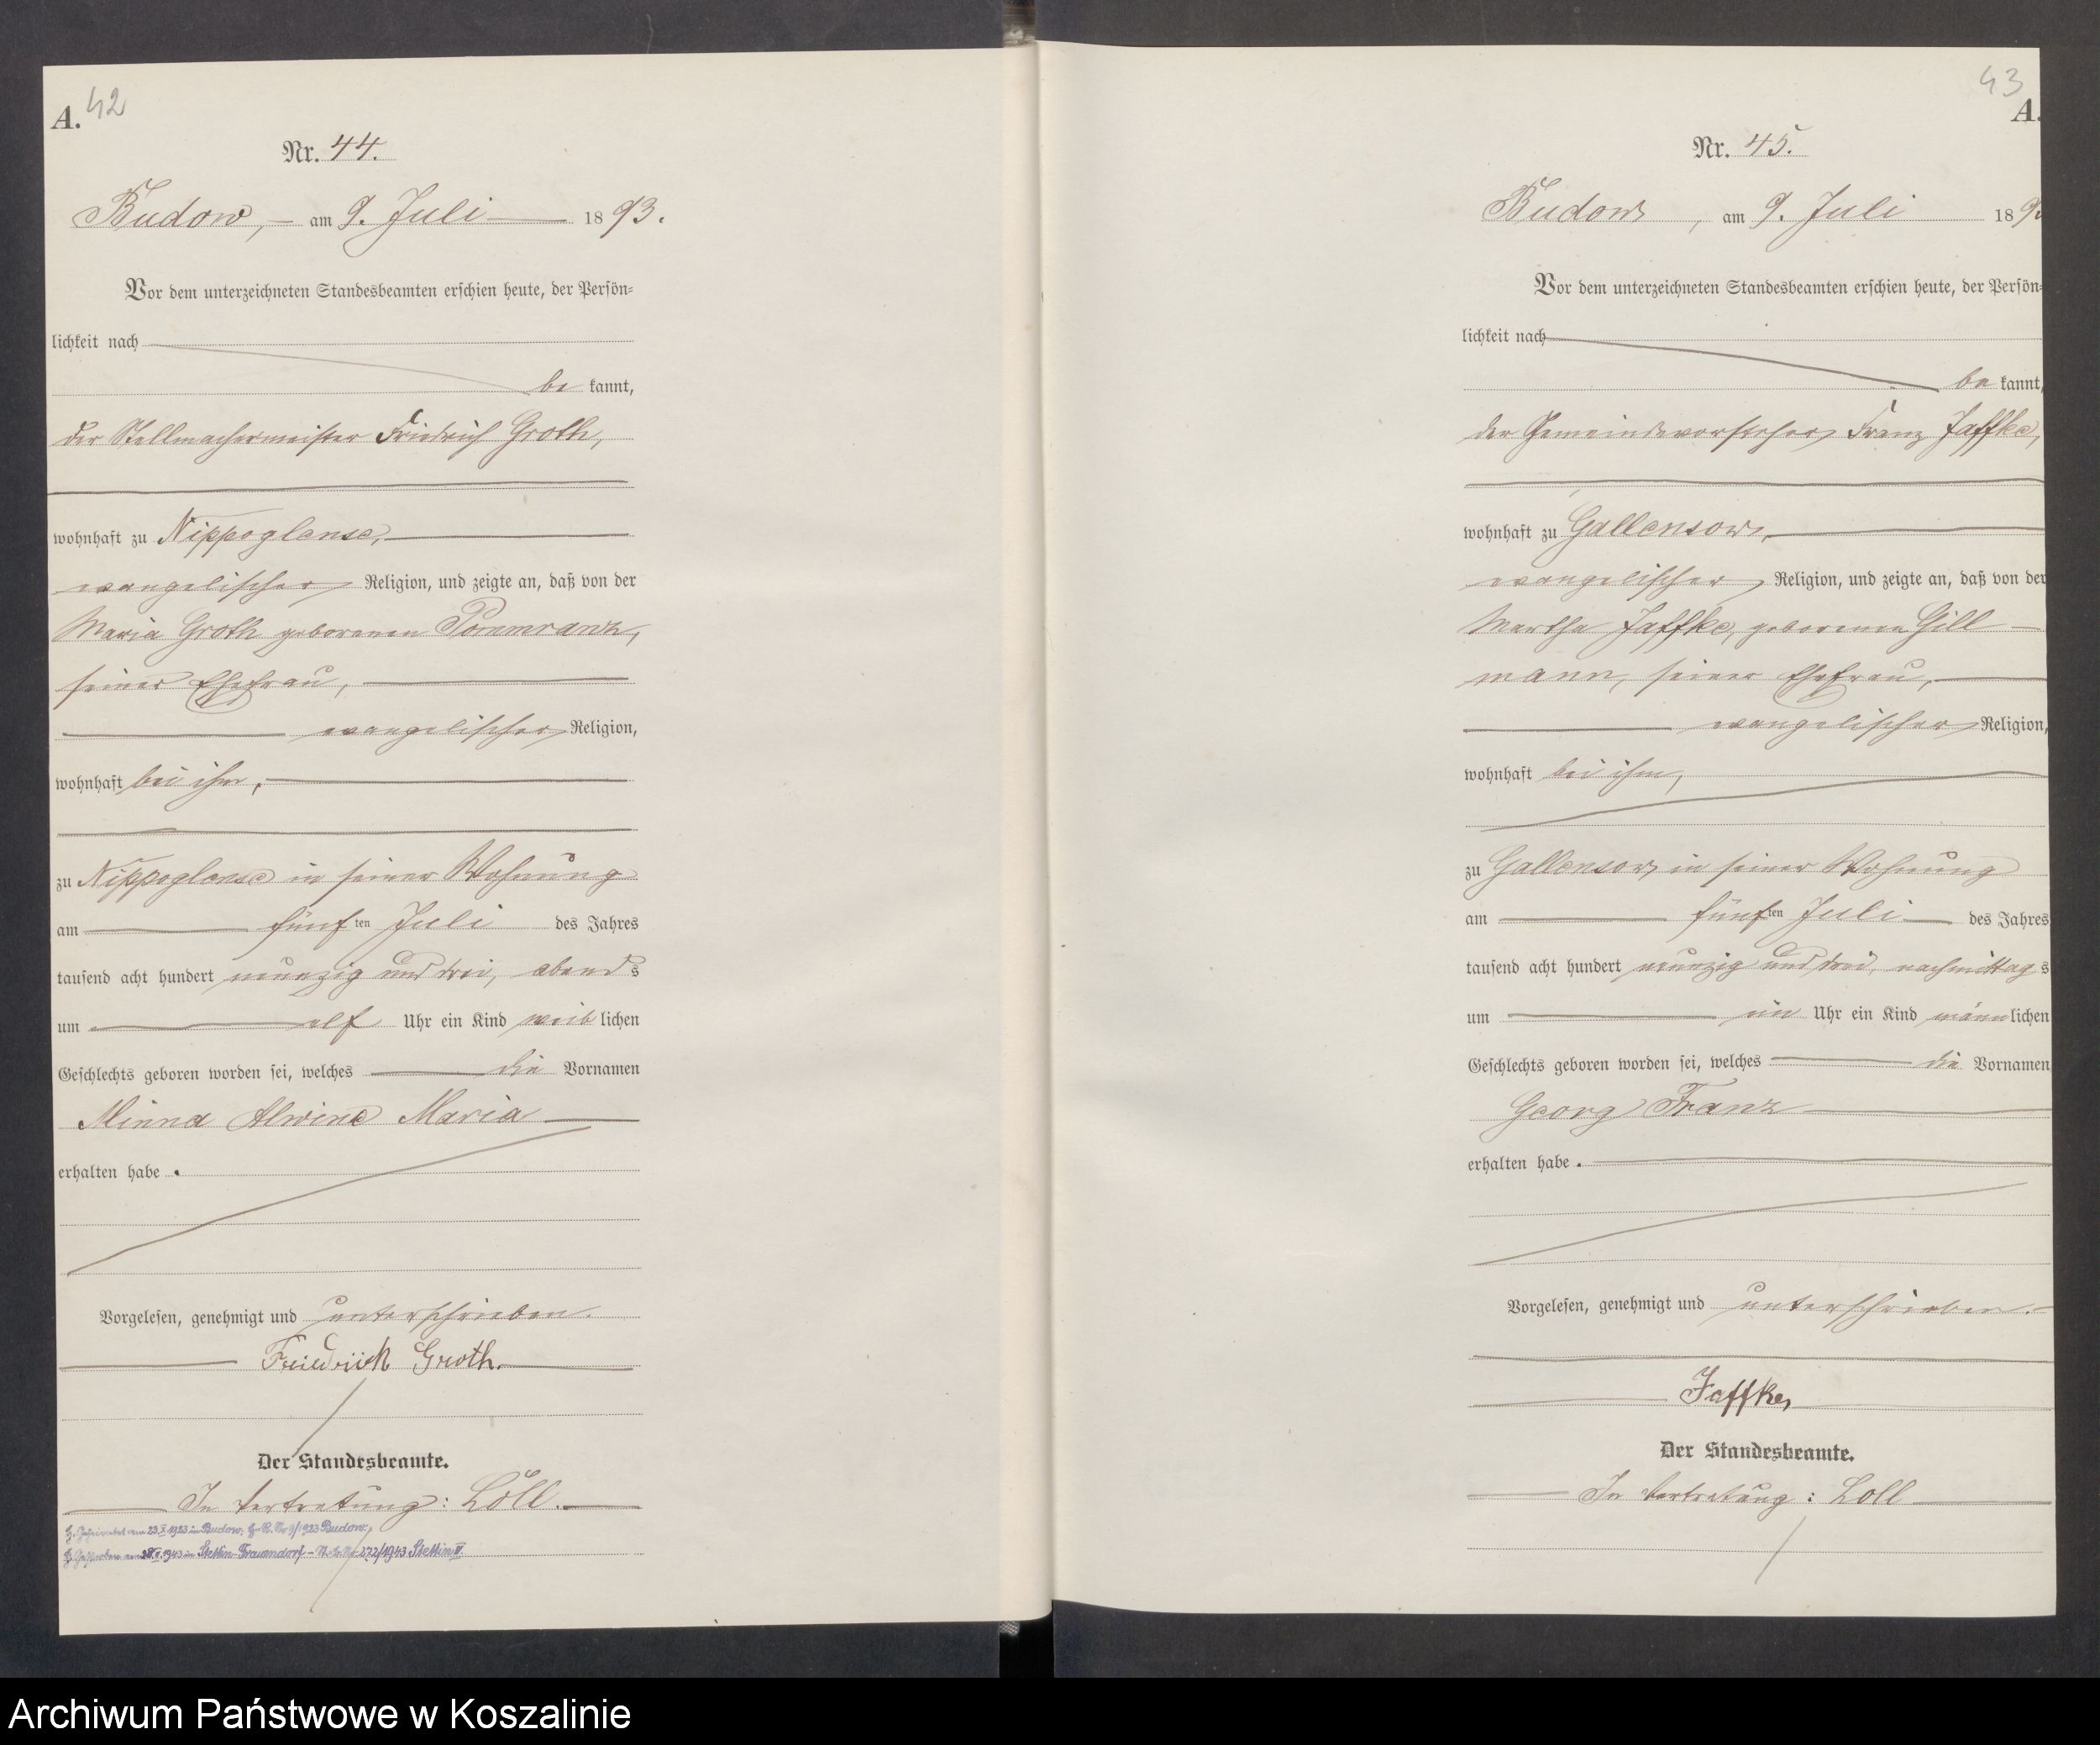 A. 42
Nr. 44.
Budow, am 9. Juli 1893.
Vor dem unterzeichneten Standesbeamten erschien heute, der Persön-
lichkeit nach
be kannt,
der Stellmachermeister Friedrich Groth,
wohnhaft zu Nippoglense,
evangelischer Religion, und zeigte an, daß von der
Maria Groth geborenen
seiner Ehefrau,
evangelischer Religion,
wohnhaft bei ihm,
zu Nippoglense in seiner Wohnung
am fünf ten Juli des Jahres
tausend acht hundert neunzig und drei, abend s
um elf Uhr ein Kind weib lichen
Geschlechts geboren worden sei, welches die Vornamen
Minna Alwine Maria
erhalten habe.
Vorgelesen, genehmigt und unterschrieben.
Friedrich Groth.
Der Standesbeamte.
In Vertretung: Löll.
1923 in Budow, 1923 Budow,
1943 in Stettin-Frauendorf - 1943 Stettin
43
A.
Nr. 45.
Budow, am 9. Juli 189
Vor dem unterzeichneten Standesbeamten erschien heute, der Persön-
lichkeit nach
be kannt,
der Gemeindevorsteher Franz Jaffke,
wohnhaft zu Gallensow,
evangelischer Religion, und zeigte an, daß von der
Martha Jaffke, geborenen Gill-
mann, seiner Ehefrau,
evangelischer Religion,
wohnhaft bei ihm,
zu Gallensow in seiner Wohnung
am fünf ten Juli des Jahres
tausend acht hundert neunzig und drei, nachmittag s
um ein Uhr ein Kind männ lichen
Geschlechts geboren worden sei, welches die Vornamen
Georg Franz
erhalten habe.
Vorgelesen, genehmigt und unterschrieben.
Jaffke,
Der Standesbeamte.
In Vertretung: Löll
Archiwum Państwowe w Koszalinie